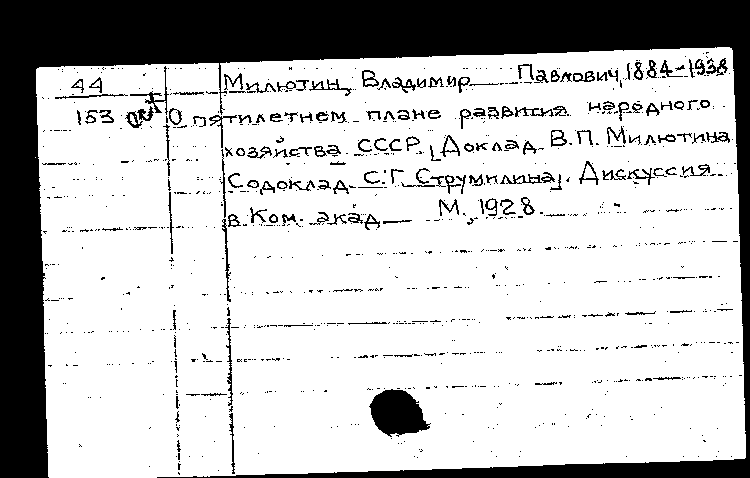 44 Милютин, Владимир Павлович, 1884-1938
153 О пятилетнем плане развития народного
хозяйства СССР. Доклад В.П. Милютина
Содоклад С.Г. Струмилина. Дискуссия
в Ком. акад М., 1928.